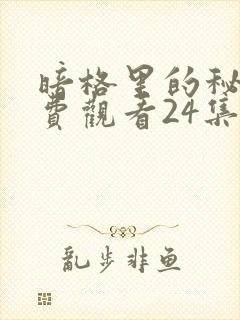 暗格里的秘
費觀看24集
亂步非鱼